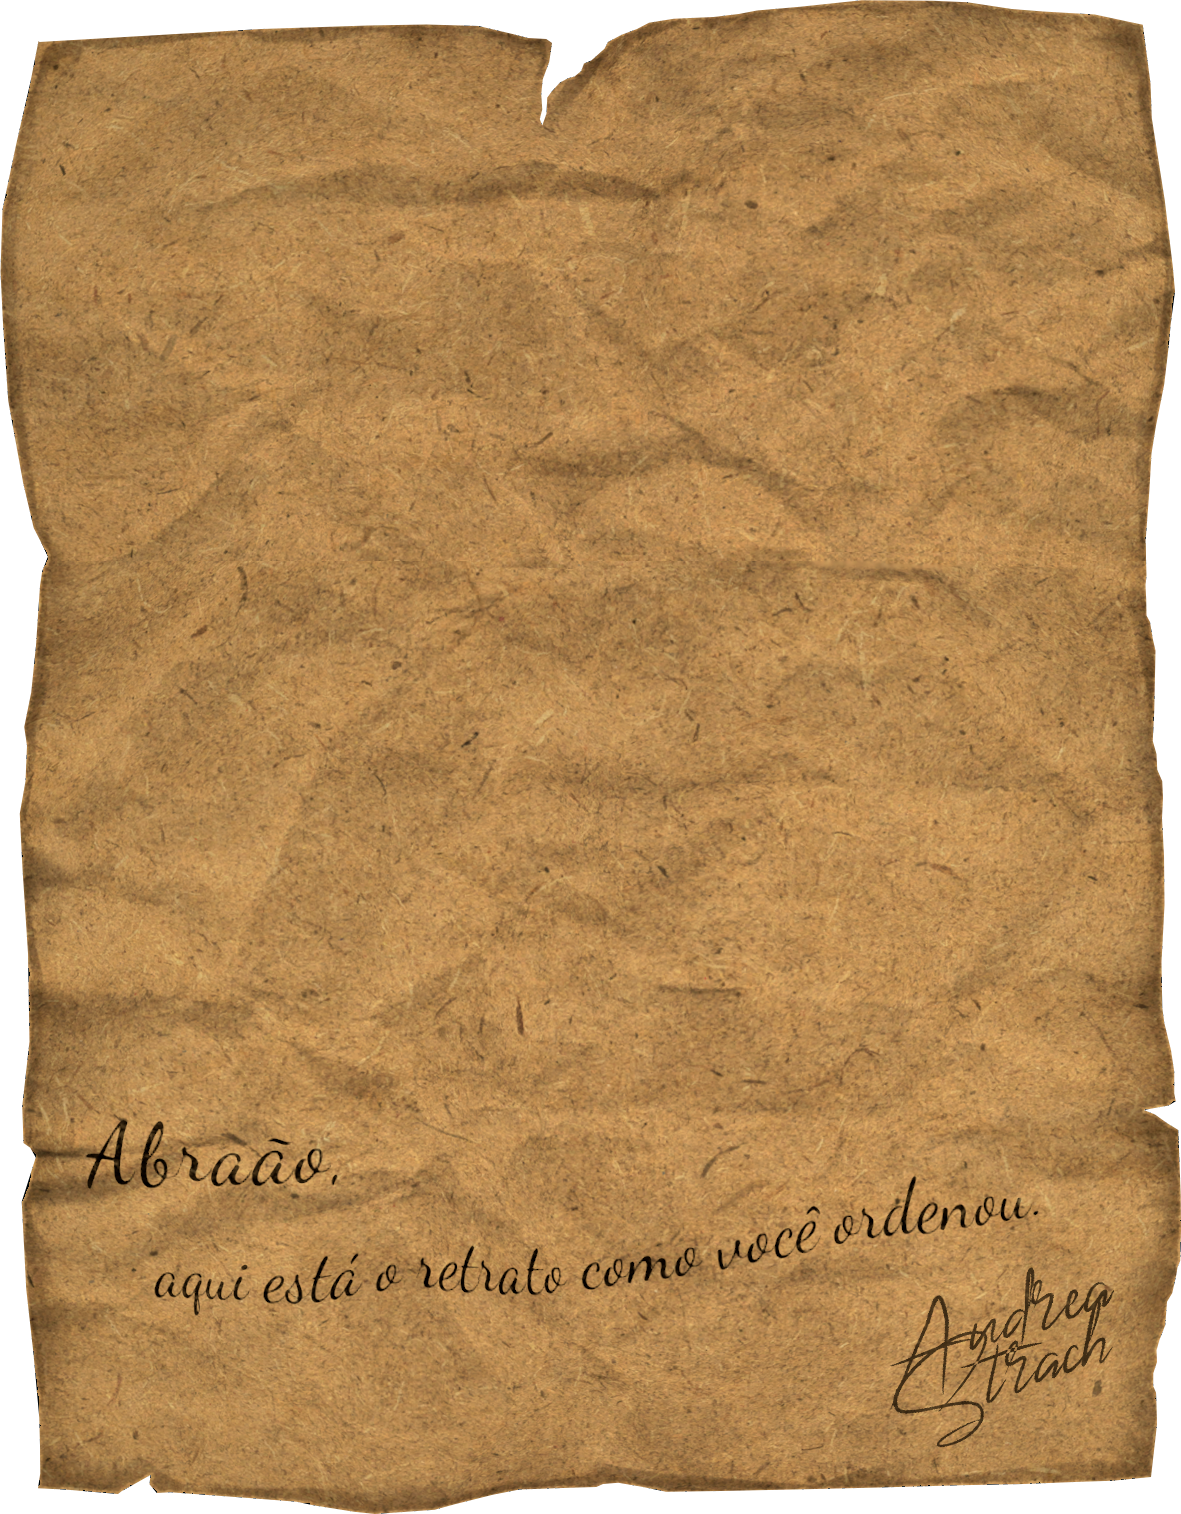 Abraão,
aqui está o retrato como você ordenou.
Andrea
Strach